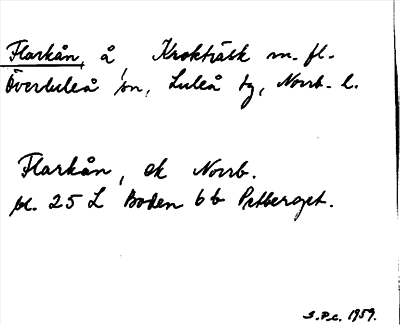 Flarkån, å, Krokträsk m. fl.
Överluleå sn, Luleå tg, Norrb. l.
Flarkån, ek Norrb.
bl. 25 L Boden 6b Petberget.
S.P.c. 1959.